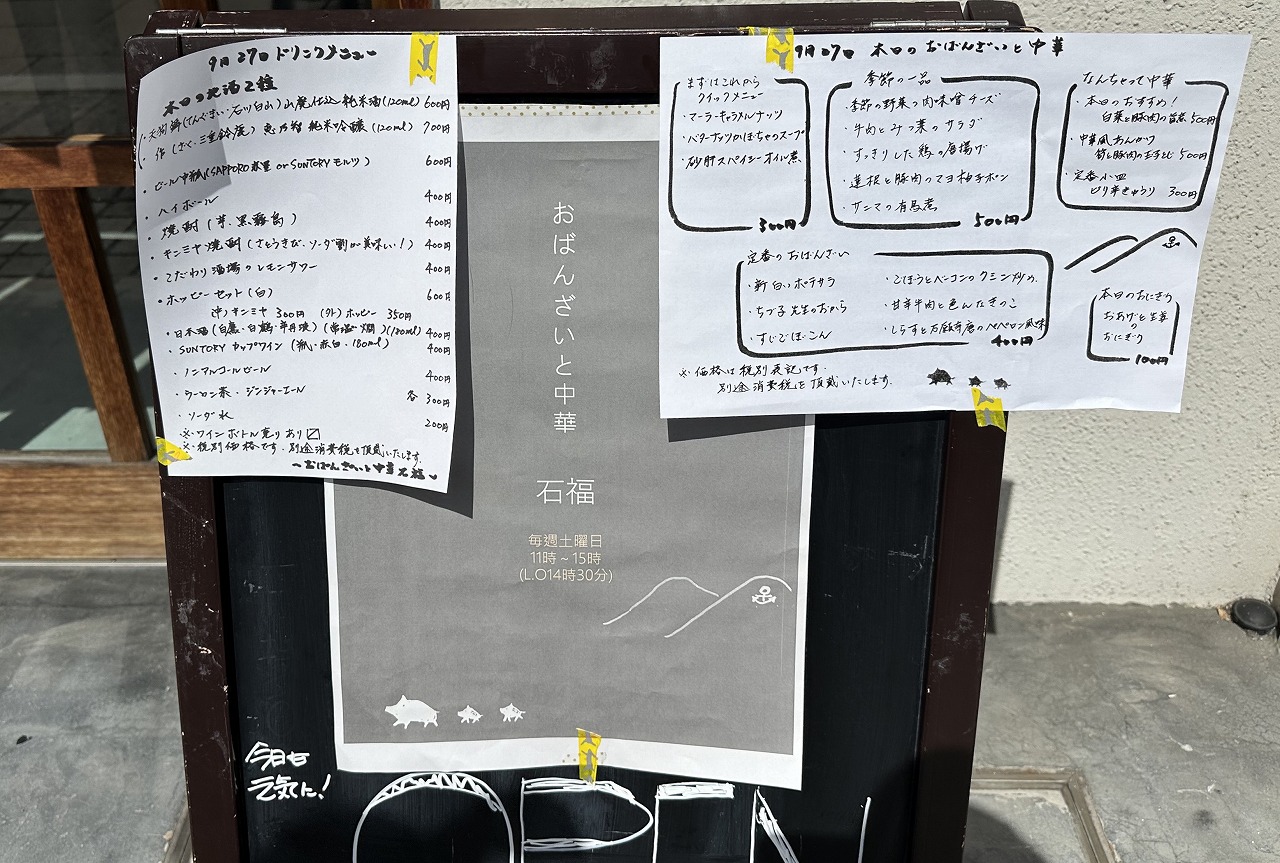 9月27日 ドリンクメニュー
本日の地酒2種
・天狗舞(てんぐまい:石川白山)山廃仕込純米酒(120ml) 600円
・作(ざく:三重鈴鹿)恵乃智 純米吟醸(120ml) 700円
・ビール中瓶(SAPPORO赤星 or SUNTORYモルツ) 600円
・ハイボール 400円
・焼酎(芋、黒霧島) 400円
・キンミヤ焼酎(さとうきび、ソーダ割が美味い!) 400円
・こだわり酒場のレモンサワー 400円
・ホッピーセット(白) 600円
(中)キンミヤ 300円 (外)ホッピー 350円
・日本酒(白鹿・白鶴・丹波)(常温・燗)(180ml) 400円
・SUNTORY カップワイン(赤白・180ml) 400円
・ノンアルコールビール 400円
・ウーロン茶・ジンジャーエール 各300円
・ソーダ水 200円
※ワインボトル売りあり
※税別価格です。別途消費税を頂戴いたします。
〜おばんざいと中華石福〜
9月27日 本日のおばんざいと中華
まずはこれから
クイックメニュー
・マーラーキャラメルナッツ
・バターナッツかぼちゃのスープ
・砂肝スパイシーオイル煮
300円
季節の一品
・季節の野菜の肉味噌チーズ
・牛肉とみつ葉のサラダ
・すっきりした鶏の唐揚げ
・蓮根と豚肉のマヨ柚子ポン
・サンマの有馬煮
500円
なんちゃって中華
・本日のおすすめ!
白菜と豚肉の旨煮 500円
・中華風あんかけ
筍と豚肉の玉子とじ 500円
・定番小皿
ピリ辛きゅうり 300円
定番のおばんざい
・新白いポテサラ
・ちづ子先生のおから
・すじごぼこん
・ごぼうとベーコンのクミン炒め
・甘辛牛肉と色んなきのこ
・しらすと万願寺唐のペペロン風味
400円
本日のおにぎり
おあげと生姜
の
おにぎり
100円
※価格は税別表記です。
別途消費税を頂戴いたします。
おばんざいと中華 石福
毎週土曜日
11時~15時
(L.O14時30分)
今日も
元気に!
OPEN